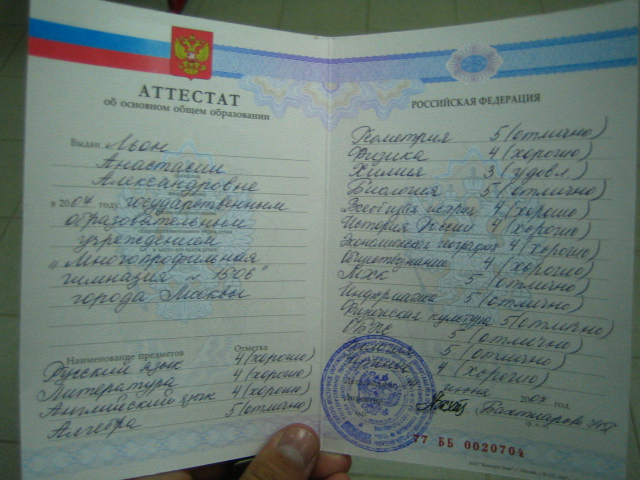 АТТЕСТАТ
об основном общем образовании
Выдан Льон
Анастасии
Александровне
в 2007 году государственным
образовательным
учреждением
"Многопрофильная
гимназия № 1506"
города Москвы
Наименование предметов Отметка
Русский язык 4 (хорошо)
Литература 4 (хорошо)
Английский язык 4 (хорошо)
Алгебра 5 (отлично)
РОССИЙСКАЯ ФЕДЕРАЦИЯ
Геометрия 5 (отлично)
Физика 4 (хорошо)
Химия 3 (удовл.)
Биология 5 (отлично)
Всеобщая история 4 (хорошо)
История России 4 (хорошо)
Экономическая география 4 (хорошо)
Обществознание 4 (хорошо)
МХК 5 (отлично)
Информатика 5 (отлично)
Физическая культура 5 (отлично)
ОБЖ 5 (отлично)
5 (отлично)
4 (хорошо)
июня 2007 год
77 ББ 0020704